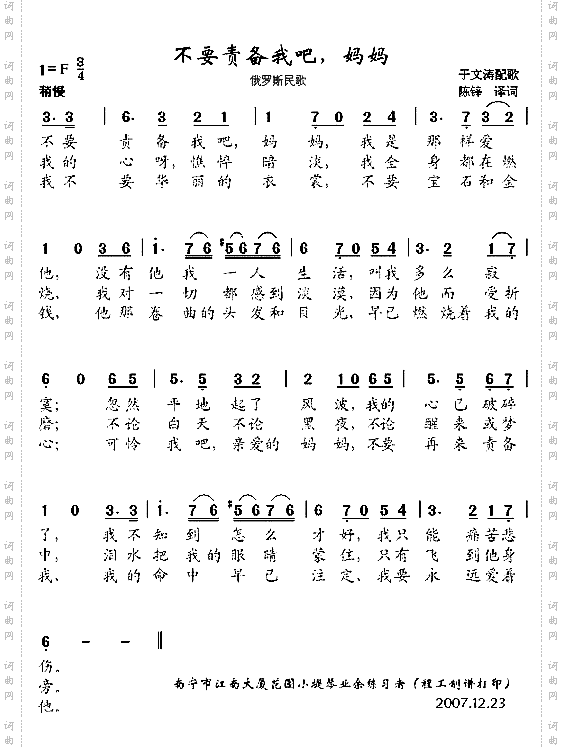 不要责备我吧，妈妈
1=F 3/4
俄罗斯民歌
于文涛配歌
稍慢
陈锌 译词
3· 3 | 6· 3 2 1 | 1 7 0 5 4 | 3· 7 3 2 |
不要 责备我吧，妈妈，我是那样爱
我的 心呀，憔悴暗淡，我全身都在燃
我不 要华丽的衣裳，不要宝石和金
1 0 3 6 | i· 7 6 | #5 6 7 6 | 6 7 0 5 4 | 3· 2 1 7 |
他；没有他我一人生活，叫我多么寂
烧，我对一切都感到淡漠，因为他而受折
钱，他那卷曲的头发和目光，早已燃烧着我的
6 0 6 5 | 5· 5 3 2 | 2 1 0 6 5 | 5· 5 2 3 |
寞；忽然平地起了风波，我的心已破碎
磨；不论白天不论黑夜、不论醒来或梦
心；可怜我吧，亲爱的妈妈，不要再来责备
1 0 3· 3 | i· 7 6 | #5 6 7 6 | 6 7 0 5 4 | 3· 2 1 7 |
了，我不知到怎么才好，我只能痛苦悲
中，泪水把我的眼睛蒙住，只有飞到他身
我、我的命中早已注定、我要永远爱着
6 - - ‖
伤。
旁。
他。
南宁市江南大厦花园小提琴业余练习者（程工制谱打印）
2007.12.23
词曲网 词曲网 词曲网 词曲网 词曲网 词曲网